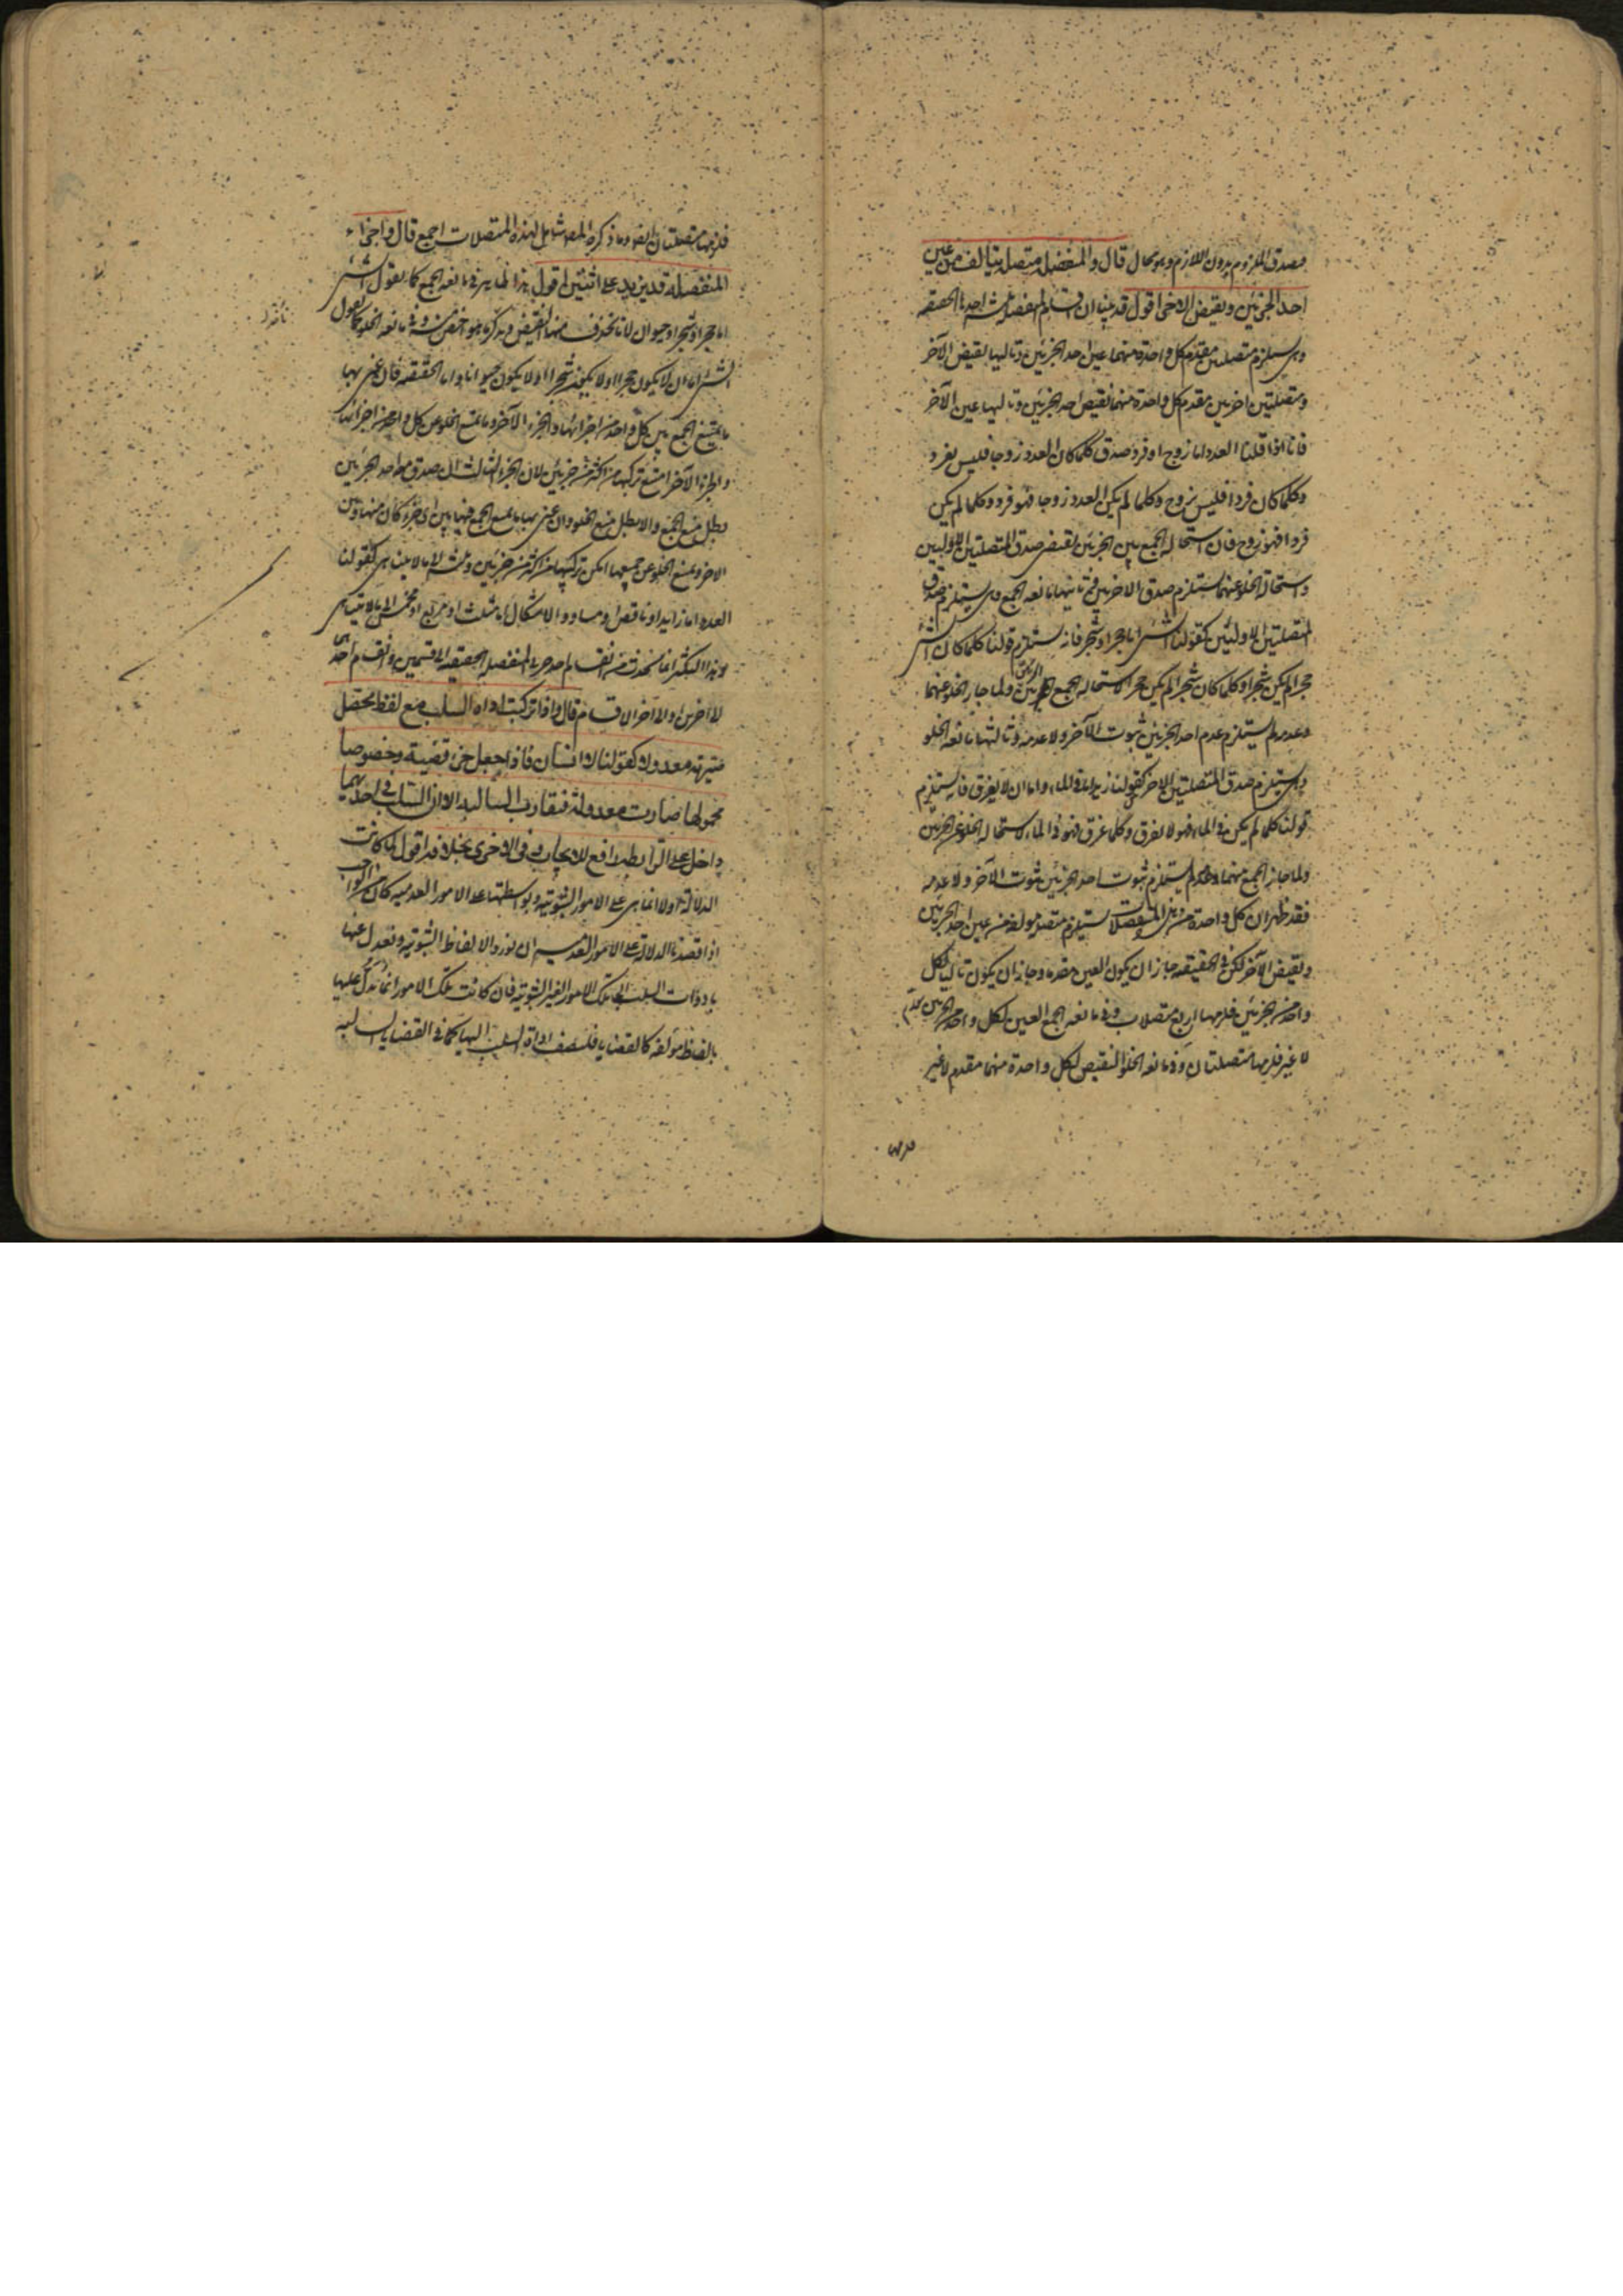 فصدق الملزوم بدون اللازم وهو محال قال والمنفصلة متصلة يتألف من عين
احد الجزئين ونقيض الاخر اقول قد بينا ان اقسام المنفصلة ثلثة احدها الحقيقية
وهى يستلزم متصلتين مقدم كل واحدة منهما عين احد الجزئين وتاليها نقيض الآخر
ومتصلتين اخريين مقدم كل واحدة منهما نقيض احد الجزئين وتاليها عين الآخر
فانا اذا قلنا العدد اما زوج او فرد صدق كلما كان العدد زوجا فليس بفرد
وكلما كان فردا فليس بزوج وكلما لم يكن العدد زوجا فهو فرد وكلما لم يكن
فردا فهو زوج فان استحالة الجمع بين الجزئين تقتضى صدق المتصلتين الاوليين
واستحالة الخلو عنهما يستلزم صدق الاخريين وثانيتها مانعة الجمع وهى يستلزم صدق
المتصلتين الاوليين كقولنا الشئ اما حجر او شجر فانه يستلزم قولنا كلما كان الشئ
حجرا لم يكن شجرا وكلما كان شجرا لم يكن حجرا لاستحالة الجمع بين الجزئين ولما جاز الخلو عنهما
وعدمه لم يستلزم عدم احد الجزئين ثبوت الآخر ولا عدمه وثالثتها مانعة الخلو
وهى يستلزم صدق المتصلتين الاخريين كقولنا زيد اما فى الماء واما ان لا يغرق فانه يستلزم
قولنا كلما لم يكن فى الماء فهو لا يغرق وكلما غرق فهو فى الماء لاستحالة الخلو عن الجزئين
ولما جاز الجمع بينهما وعدمه لم يستلزم ثبوت احد الجزئين ثبوت الآخر ولا عدمه
فقد ظهر ان كل واحدة من هذه المنفصلات يستلزم متصلة مؤلفة من عين احد الجزئين
ونقيض الآخر لكن فى الحقيقية جاز ان يكون العين مقدما وجاز ان يكون تاليا لكل
واحد من الجزئين فلزمها اربع متصلات وفى مانعة الجمع العين لكل واحد من الجزئين مقدم
لا غير فلزمها متصلتان وفى مانعة الخلو النقيض لكل واحدة منهما مقدم لا غير
فلزمها متصلتان ايضا وما ذكره المصنف شامل لهذه المتصلات اجمع قال واجزاء
المنفصلة قد يزيد على اثنتين اقول هذا ظاهر فى مانعة الجمع كما يقول الشئ
اما حجر او شجر او حيوان لانا نحذف منها النقيض ونذكر ما هو اخص منه وفى مانعة الخلو كما يقول
الشئ اما ان لا يكون حجرا او لا يكون شجرا او لا يكون حيوانا واما الحقيقية فان عنى بها
ما يمتنع الجمع بين كل واحد من اجزائها والجزء الآخر وما يمتنع الخلو عن كل واحد من اجزائها
والجزء الآخر امتنع تركبها من اكثر من جزئين لان الجزء الثالث ان صدق مع احد الجزئين
بطل منع الجمع والا بطل منع الخلو وان عنى بها ما يمنع الجمع فيها بين اى جزء كان منها وبين
الاخر ويمنع الخلو عن جميعها امكن تركبها من اكثر من جزئين وثلثة الى ما لا يتناهى كقولنا
العدد اما زايد او ناقص او مساو والاشكال اما مثلث او مربع او مخمس الى ما لا يتناهى
وهذا التكثر انما يحدث من انقسام احد جزئى المنفصلة الحقيقية الى قسمين وانقسام احد
الاخرين او الآخر الى اقسام قال واذا تركبت اداة السلب مع لفظ محصل
صيرته معدولا كقولنا لا انسان فاذا جعل جزء قضية وخصوصا
محمولها صارت معدولة فتفارق السالبة لان السلب فى احديهما
داخل على الرابطة رافع للايجاب وفى الاخرى بخلافه اقول لما كانت
الدلالة اولا انما هى على الامور الثبوتية وبواسطتها على الامور العدمية كان من الواجب
اذا قصدنا الدلالة على الامور العدمية ان نورد الالفاظ الثبوتية ونعدل عنها
بادوات السلب الى تلك الامور الغير الثبوتية فان كانت تلك الامور انما يدل عليها
بالفاظ مؤلفة كالقضايا فلنضف اداة السلب اليها كما فى القضايا السالبة